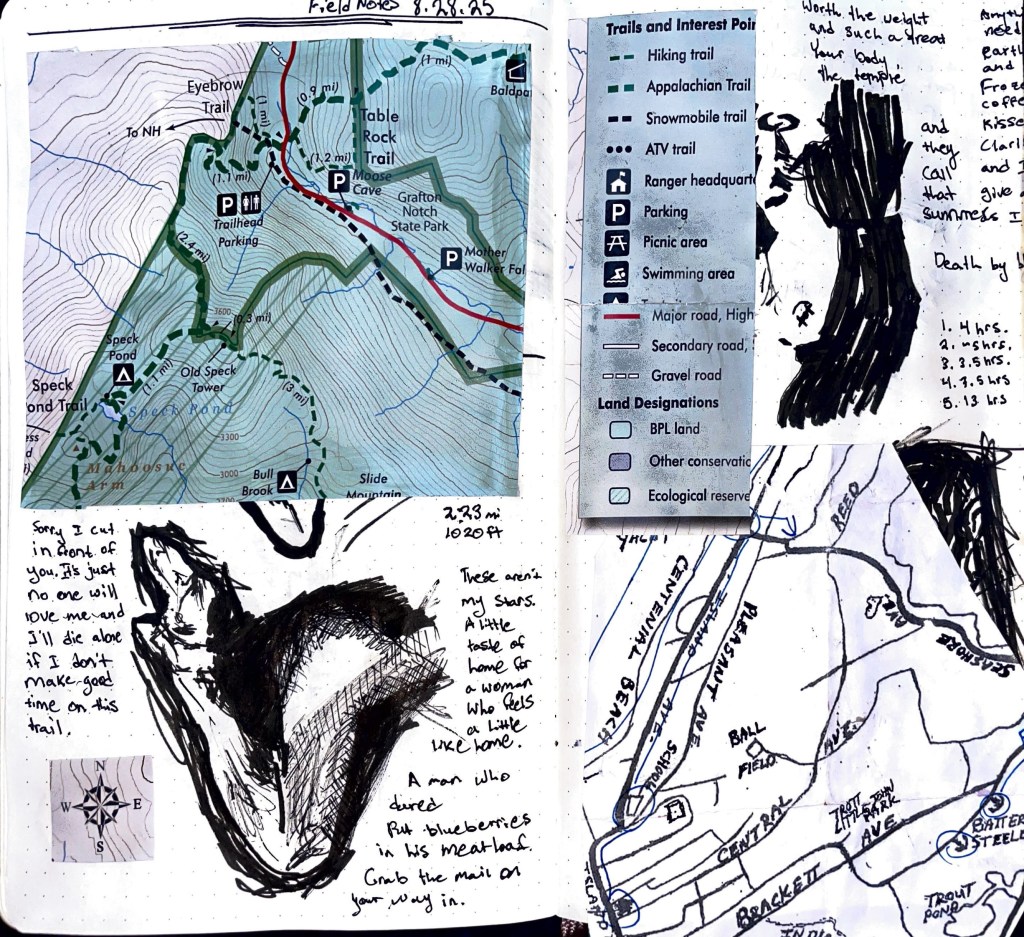 Field Notes 8.28.25
Eyebrow
Trail
To NH
(1 mi)
(0.9 mi)
(1 mi)
Table
Rock
Trail
(1.2 mi)
(1.1 mi)
P
Moose
Cave
P
Trailhead
Parking
Grafton
Notch
State Park
P
Mother
Walker
(2.4 mi)
3600
(0.3 mi)
Speck
Pond
(1.1 mi)
Old Speck
Tower
(3 mi)
Speck
Trail
Speck Pond
Mahoosuc
Arm
3300
3000
Bull
Brook
Slide
Mountain
Sorry I cut
in front of
you. It's just
no one will
love me and
I'll die alone
if I don't
make good
time on this
trail.
N
W E
S
2.23 mi
1020 ft
These aren't
my stars.
A little
taste of
home for
a woman
who feels
a little
like home.
A man who
dared
Put blueberries
in his meatloaf.
Grab the mail on
your way in.
Trails and Interest
Hiking trail
Appalachian Trail
Snowmobile trail
ATV trail
Ranger
P Parking
Picnic area
Swimming area
Major road,
Secondary road,
Gravel road
Land Designations
BPL land
Other
Ecological
Worth the weight
and such a treat
Your body,
the temple
and
they
call
that
summers
need
earth
and
coffee
and I
give
I
Death by
1. 4 hrs.
2. ~5 hrs.
3. 3.5 hrs
4. 3.5 hrs
5. 13 hrs
REED
AVE
SEASHORE
CENTENNIAL BEACH
ISLAND AVE.
PLEASANT AVE
SCHOOL
BALL
FIELD
AVE.
CENTRAL
TROTT
LITTLEJOHN
PARK
AVE
BRACKETT
STEELE
TROUT
POND
ISLAND